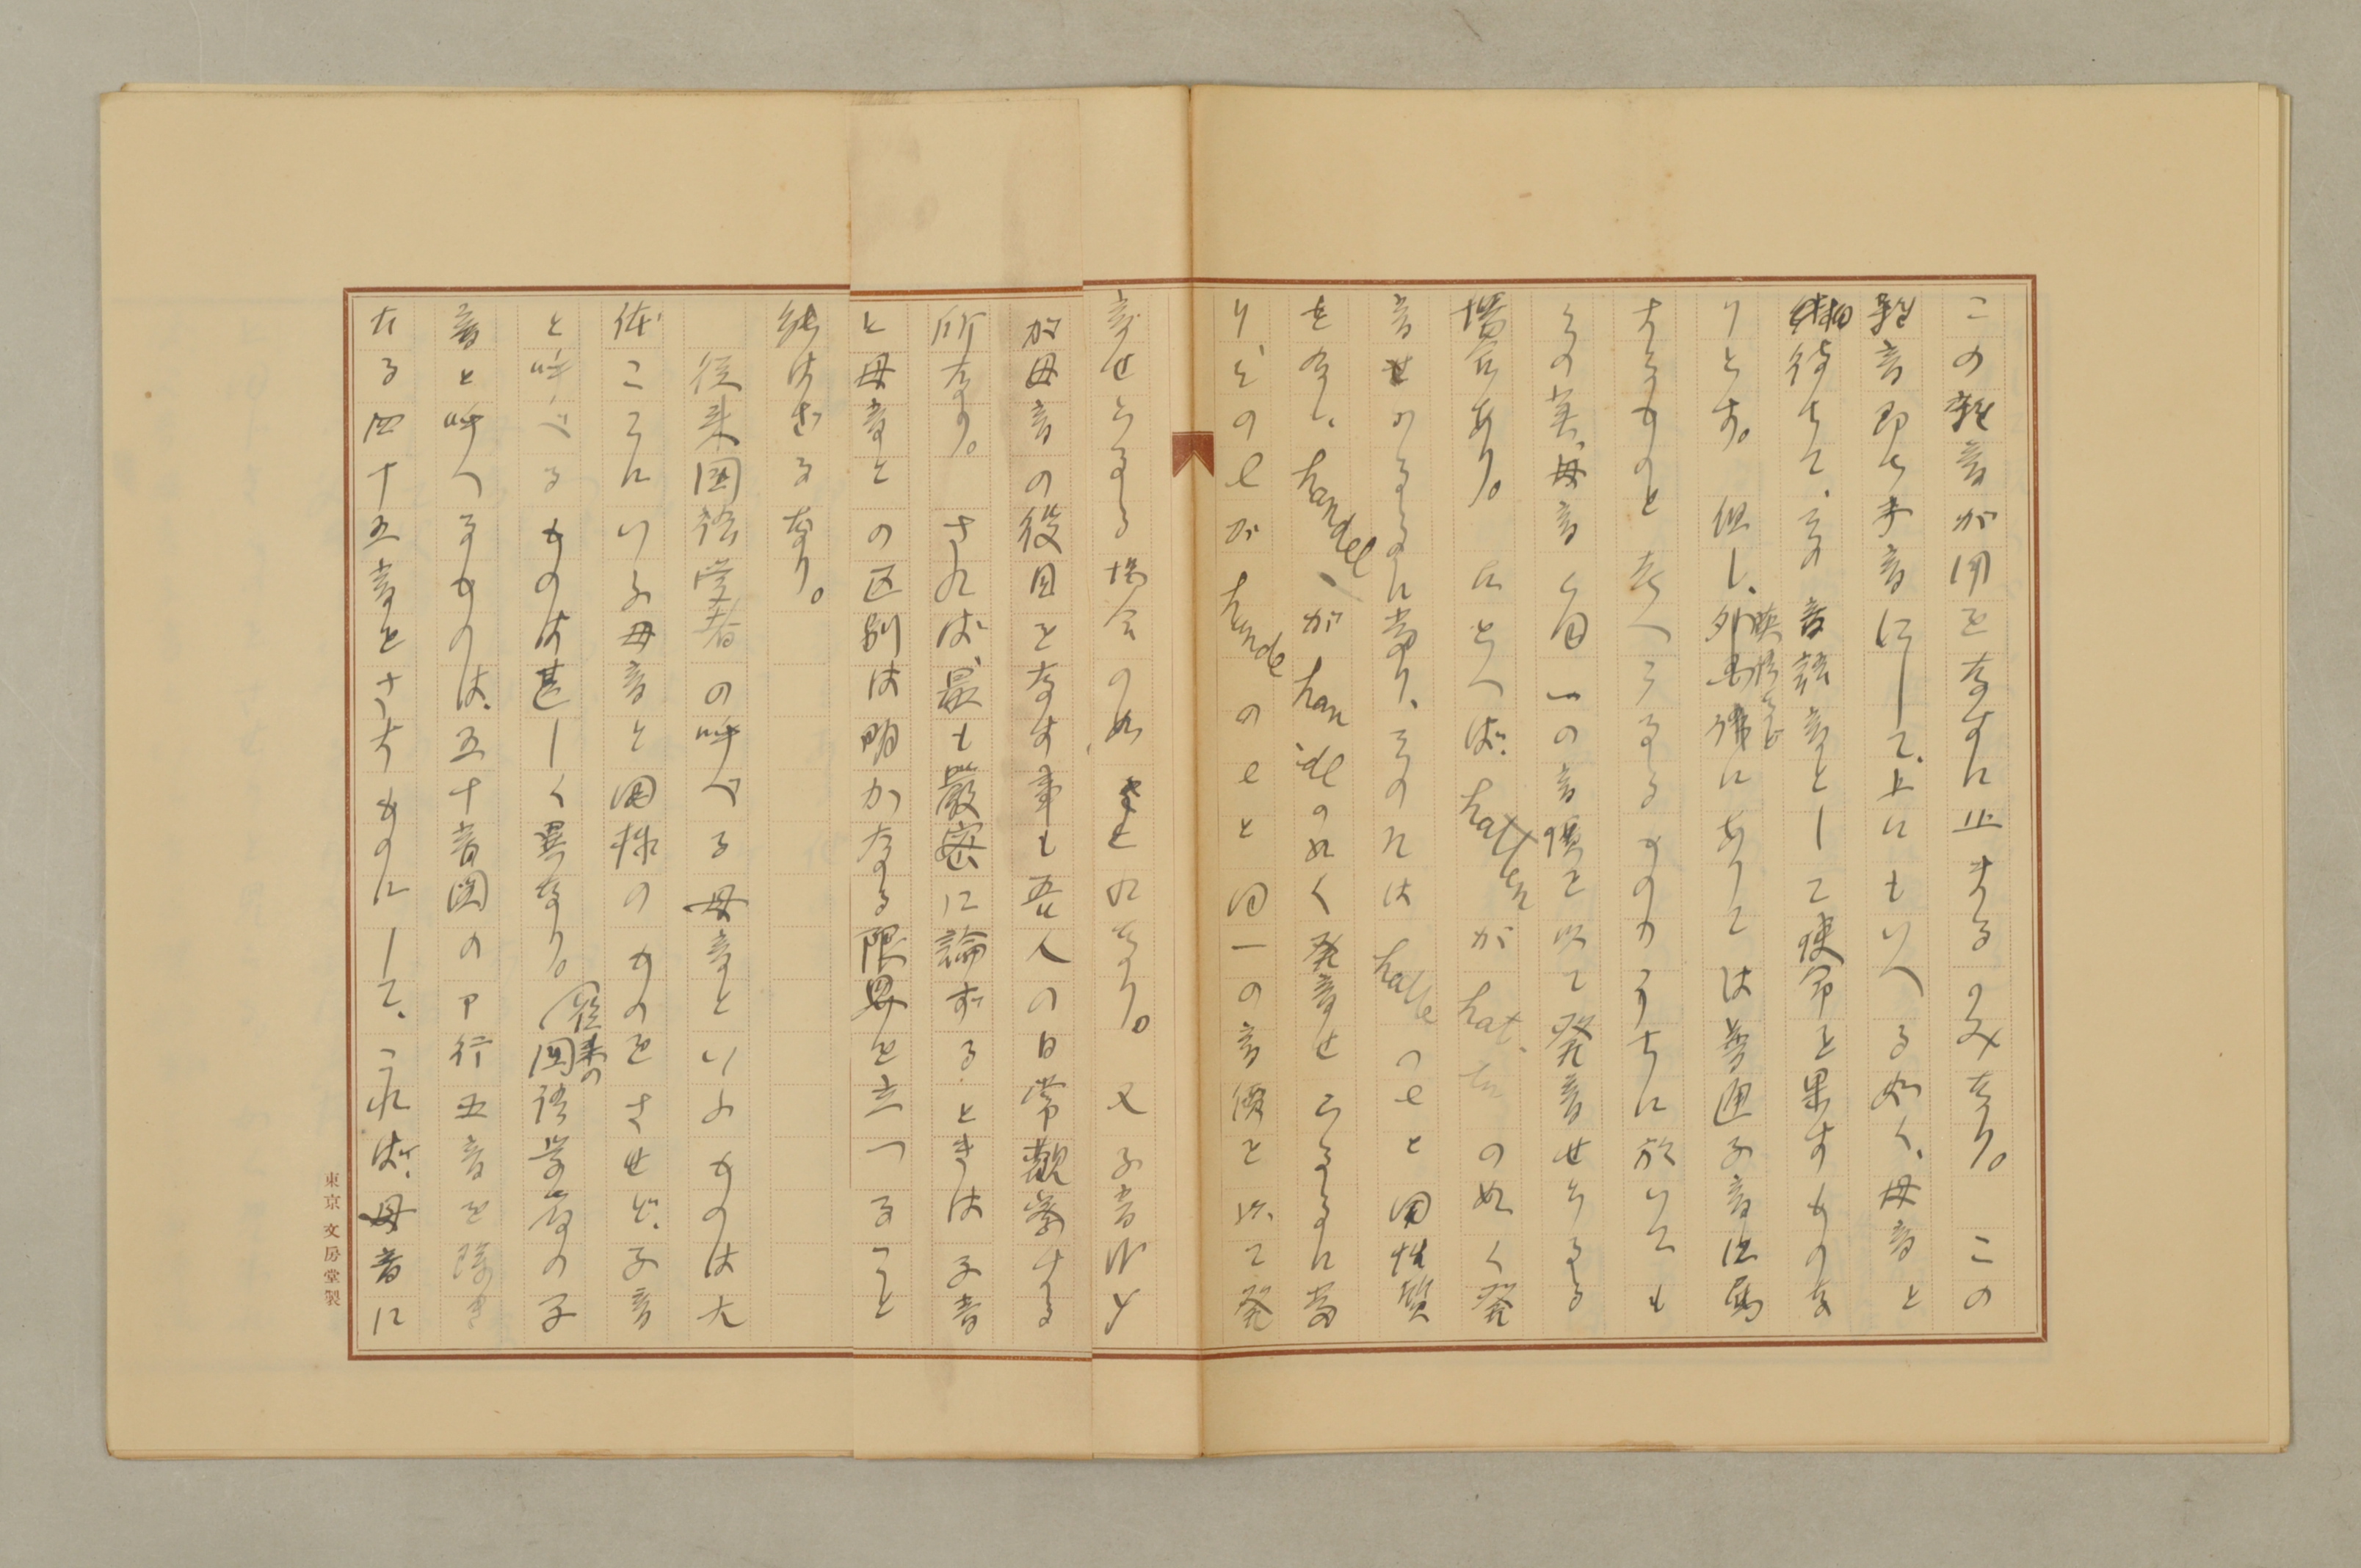 この雜音が用をなすに止まるのみなり。 この
雜音即ち子音にして、上にもいへる如く、母音と
相待ちて、音語音として使命を果すものな
りとす。 但し、外國語にありては普通子音に屬
するものと考へらるるもののうちに於いても
その実、母音と同一の音價を以て発音せらるる
場合あり。 たとへば、hatten が hat.tn のぬく発
音せらるるに當り、そのnは hatte のeと同性質
をなし、handel、が han'dl のぬく発音せらるるに當
りそのlが hande のeと同一の音價を以て発
音せらるる場合の如きこれなり。 又子音のy
が母音の役目をなす事も吾人の日常觀察する
所なり。 されば、最も嚴密に論ずるときは子音
と母音との区別は明かなる限界を立つること
能はざるなり。
従来国語学者の呼べる母音といふものは大
体ここにいふ母音と同様のものをさせど、子音
と呼べるものは甚しく異なり。従来の国語学者の子
音と呼べるものは、五十音図のア行五音を除き
たる四十五音をさすものにして、これは、母音に
東京 文房堂製